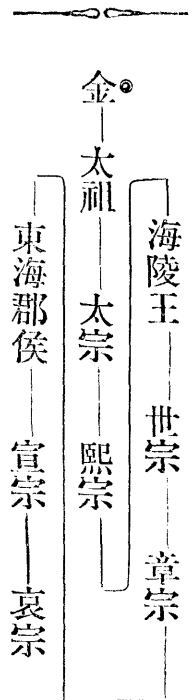 金 太祖 太宗 熙宗
海陵王 世宗 章宗
東海郡侯 宣宗 哀宗